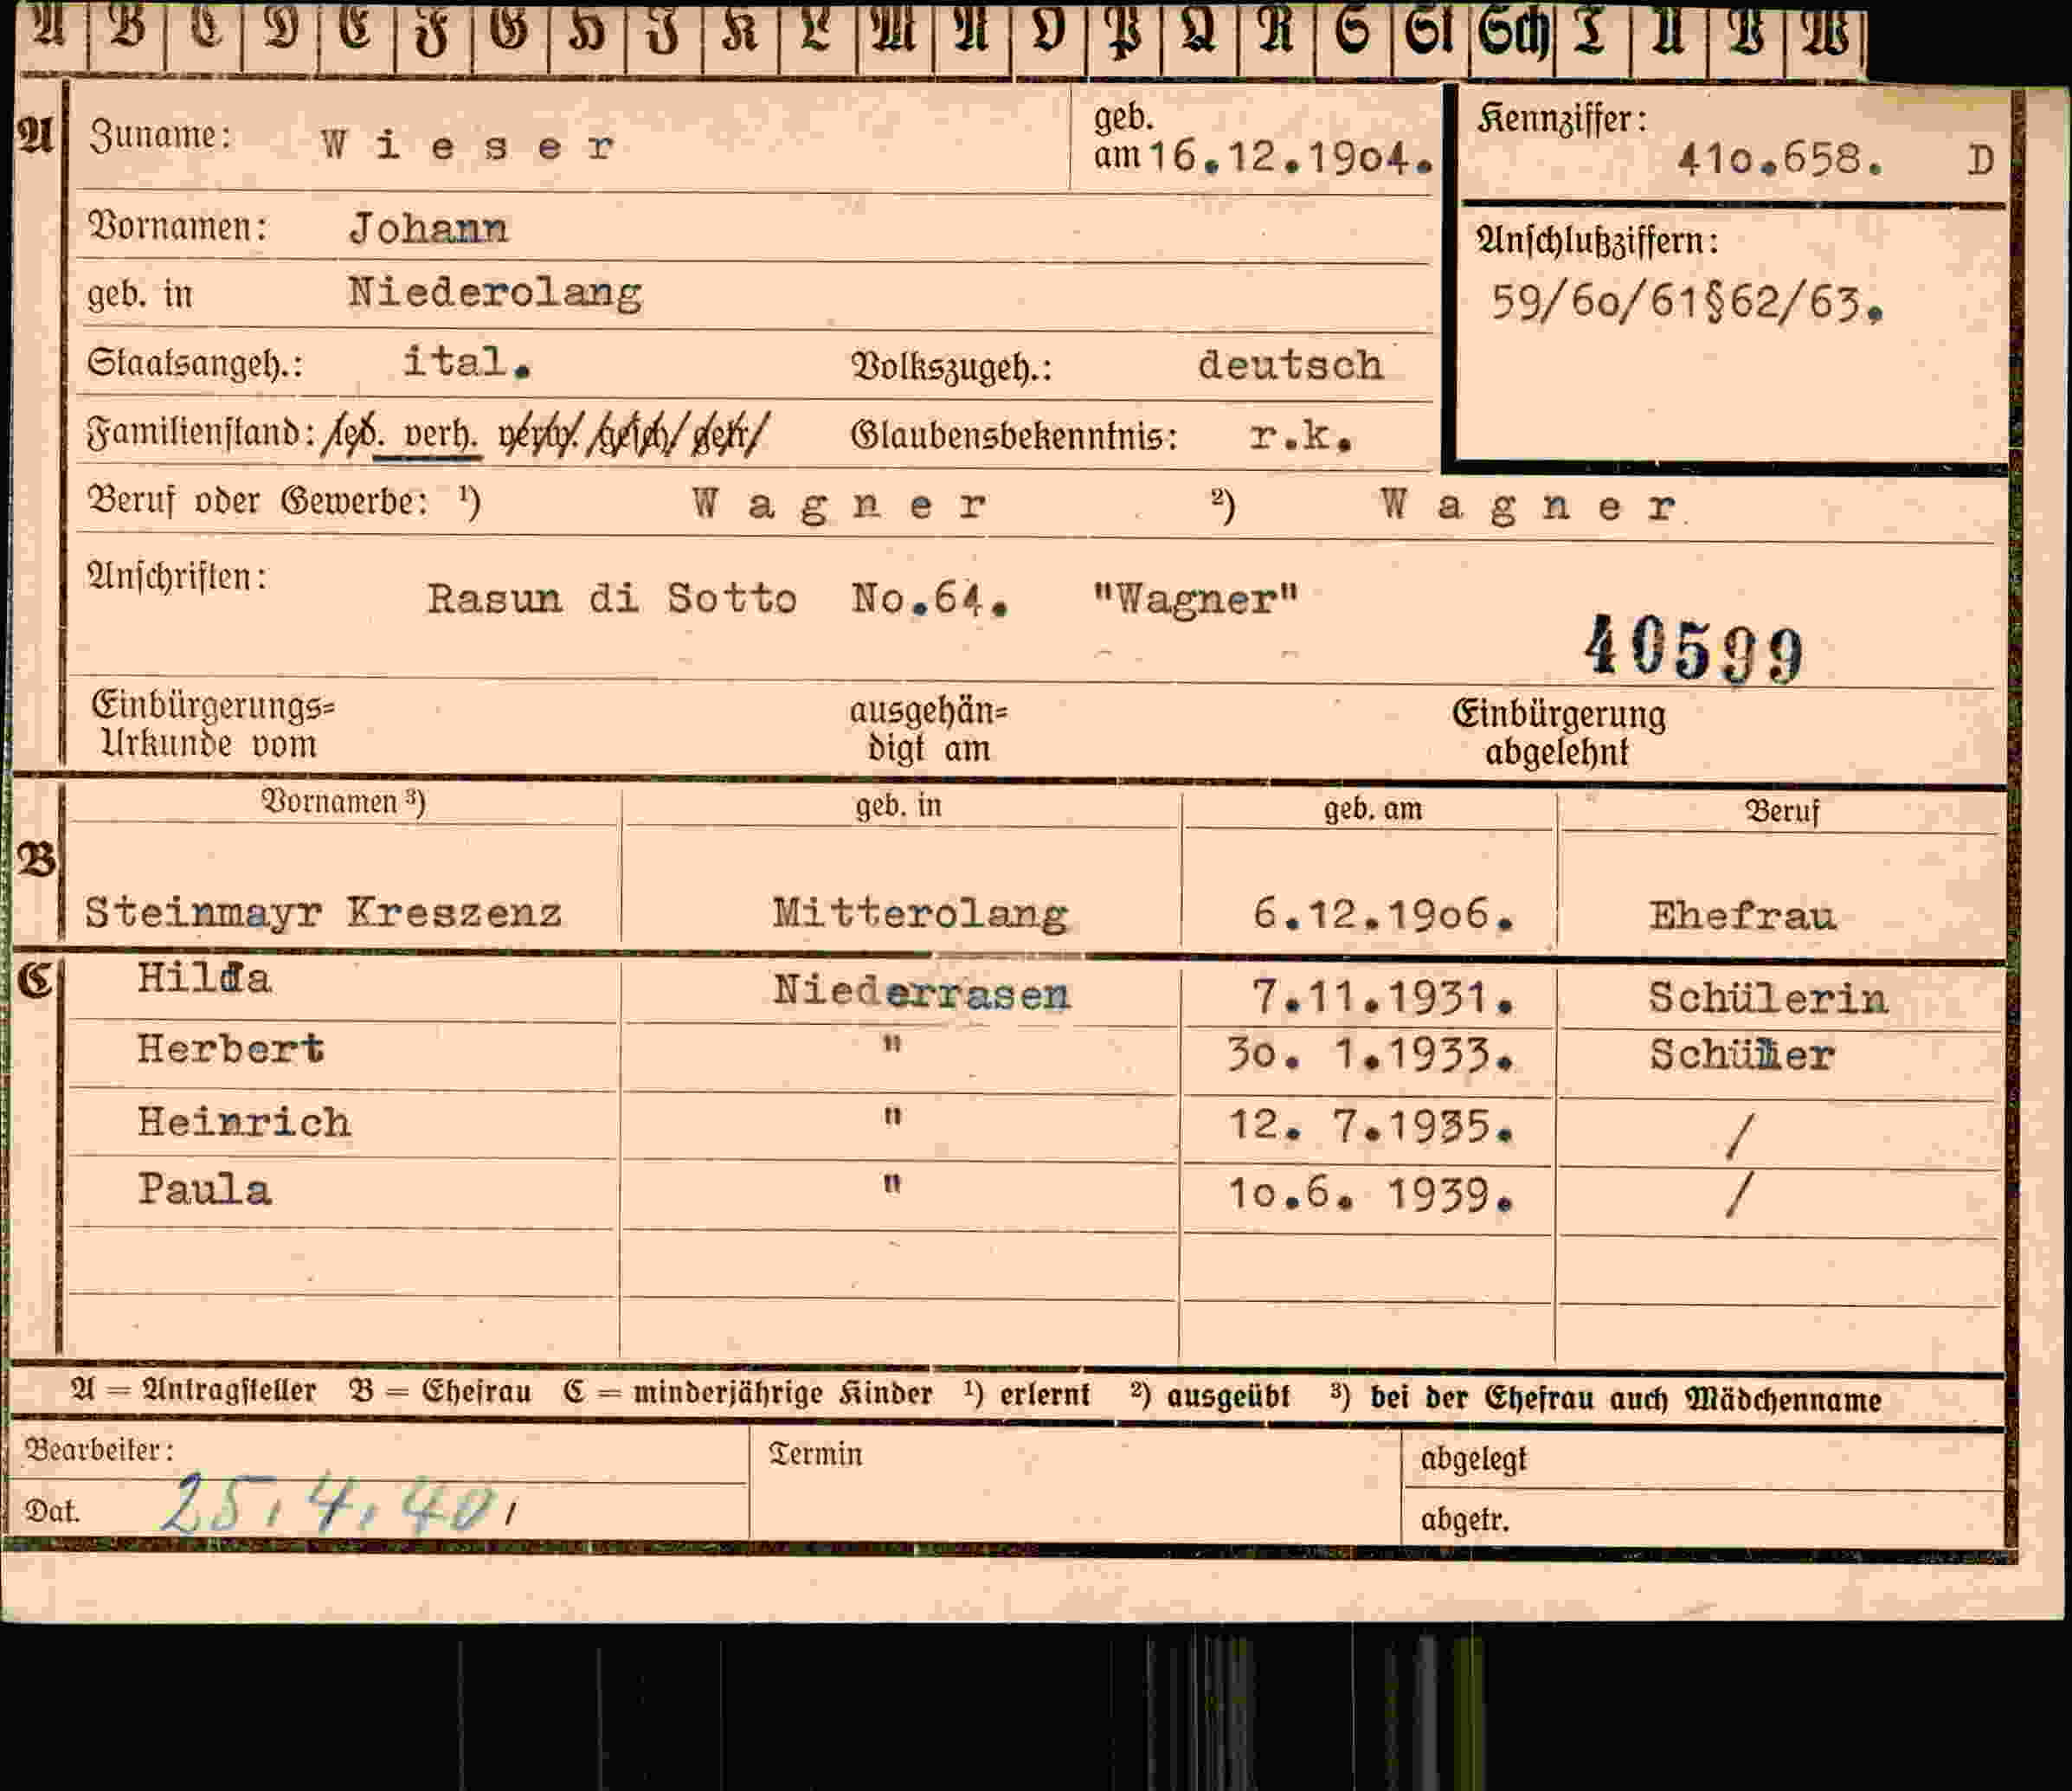 A B C D E F G H J K L M N O P Q R S St Sch T U V W
A Zuname: Wieser geb. am 16.12.1904. Kennziffer: 410.658. D
Vornamen: Johann Anschlußziffern:
geb. in Niederolang 59/60/61§62/63.
Staatsangeh.: ital. Volkszugeh.: deutsch
Familienstand: led. verh. verw. gesch. getr. Glaubensbekenntnis: r.k.
Beruf oder Gewerbe: ¹) Wagner ²) Wagner
Anschriften: Rasun di Sotto No.64. "Wagner"
40599
Einbürgerungs= ausgehän= Einbürgerung
Urkunde vom digt am abgelehnt
Vornamen ³) geb. in geb. am Beruf
B
Steinmayr Kreszenz Mitterolang 6.12.1906. Ehefrau
C Hilda Niederrasen 7.11.1931. Schülerin
Herbert " 30. 1.1933. Schüler
Heinrich " 12. 7.1935. /
Paula " 10.6. 1939. /
A = Antragsteller B = Ehefrau C = minderjährige Kinder ¹) erlernt ²) ausgeübt ³) bei der Ehefrau auch Mädchenname
Bearbeiter: Termin abgelegt
Dat. 25.4.40. abgetr.